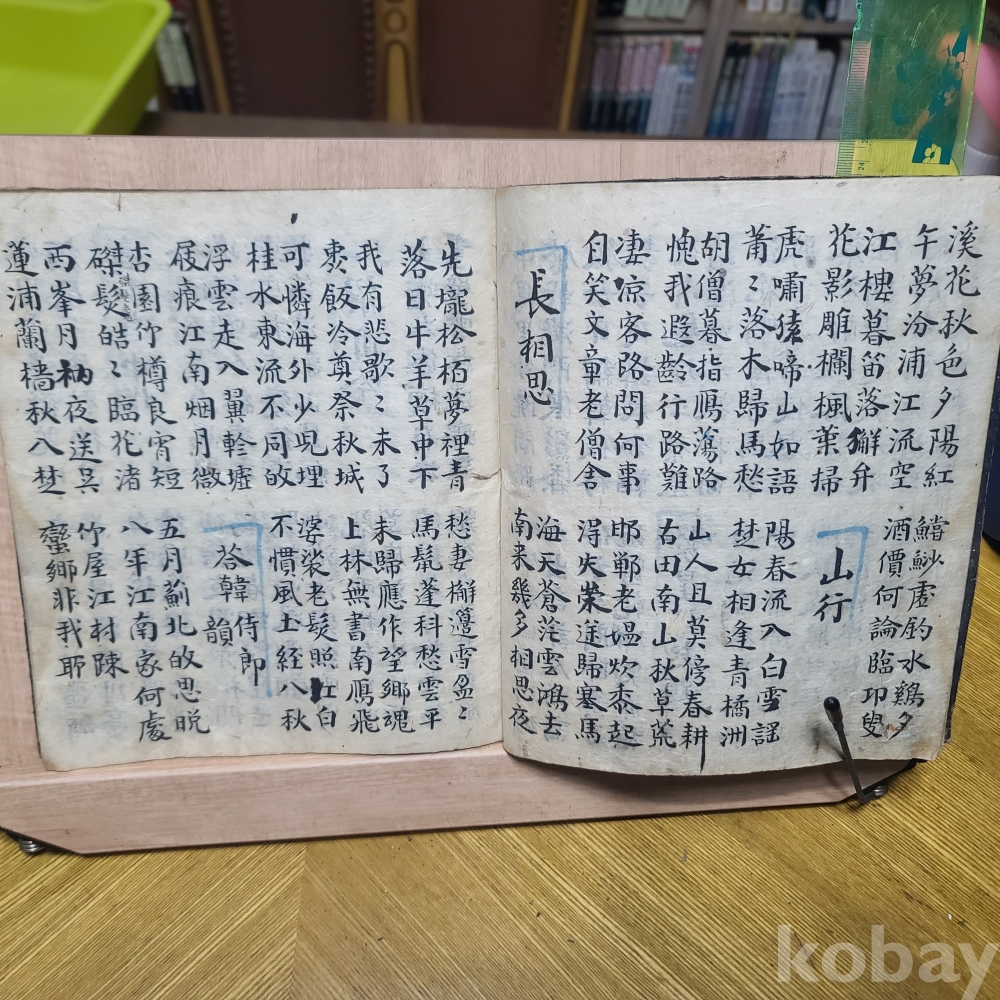 溪花秋色夕陽紅
午夢汾浦江流空
江樓暮笛落獬弁
花影雕欄楓葉掃
虎嘯猿啼山如語
莆〻落木歸馬愁
胡僧暮指鴈蕩路
愧我遐齡行路難
凄凉客路問何事
自笑文童老僧舍
長相思
虛釣水鷄夕
酒價何論臨卭叟
山行
陽春流入白雪謡
楚女相逢青橘洲
山人且莫傍春耕
古田南山秋草荒
邯鄲老媼炊黍起
得失榮途歸塞馬
海天蒼茫雲鴻去
南来幾多相思夜
先壠松栢夢裡青
落日牛羊草中下
我有悲歌〻未了
麦飯冷奠祭秋城
可憐海外少児埋
桂水東流不同故
浮雲走入翼軫墟
屐痕江南烟月微
杏園竹樽良宵短
磔髮皓〻臨花渚
西峯月衲夜送吳
蓮浦蘭檣秋入楚
愁妻雪盈〻
馬鬣蓬科愁雲平
未歸應作望鄉魂
上林無書南鴈飛
婆娑老髮照江白
不慣風土經八秋
荅韓侍郎韻
五月薊北故思晩
八年江南家何處
竹屋江村陳
蠻鄉非我耶
kobay